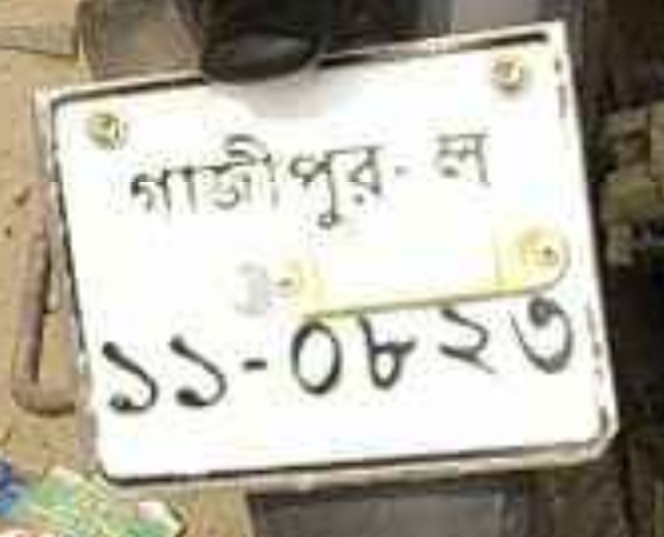 গাজীপুর-ল
১১-০৮২৩